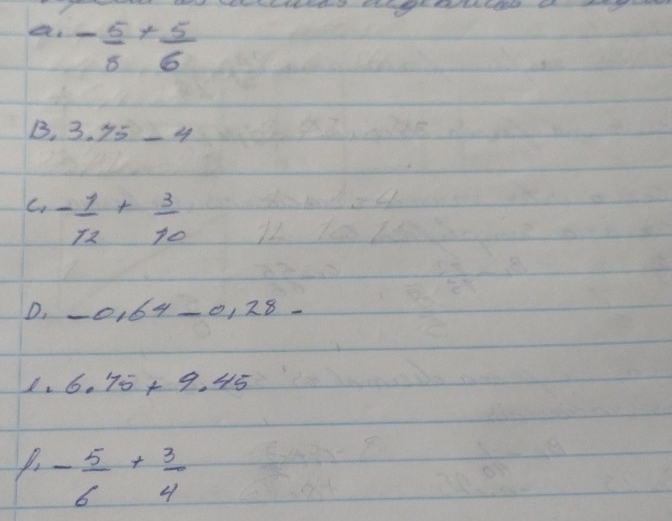 a. -5/8 + 5/6
B. 3.75 - 4
c. -1/12 + 3/10
D. -0,64 - 0,28 -
e. 6.75 + 9.45
f. -5/6 + 3/4